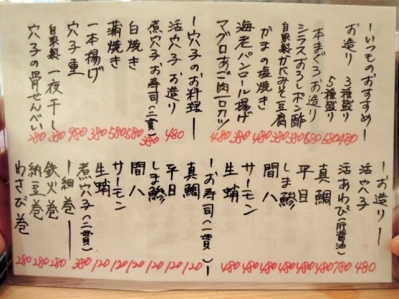 ―いつものおすすめ―
お造り 3種盛り 480
5種盛り 680
本まぐろお造り 680
シラスおろしポン酢 380
自家製かにみそ豆腐 380
かまの塩焼き 380
海老パンロール揚げ 480
マグロあご肉一口カツ 480
―穴子のお料理―
活穴子お造り 480
煮穴子お寿司(二貫) 380
白焼き 680
蒲焼き 680
一本揚げ 580
穴子重 780
自家製一夜干し 380
穴子の骨せんべい 380
―お造り―
活穴子 480
活あわび(肝醤油) 780
真鯛 480
平目 480
しま鯵 480
間八 480
サーモン 480
生蛸 480
―お寿司(一貫)―
真鯛 120
平目 120
しま鯵 120
間八 120
サーモン 120
生蛸 120
煮穴子(二貫) 380
―細巻―
鉄火巻 280
納豆巻 280
わさび巻 280